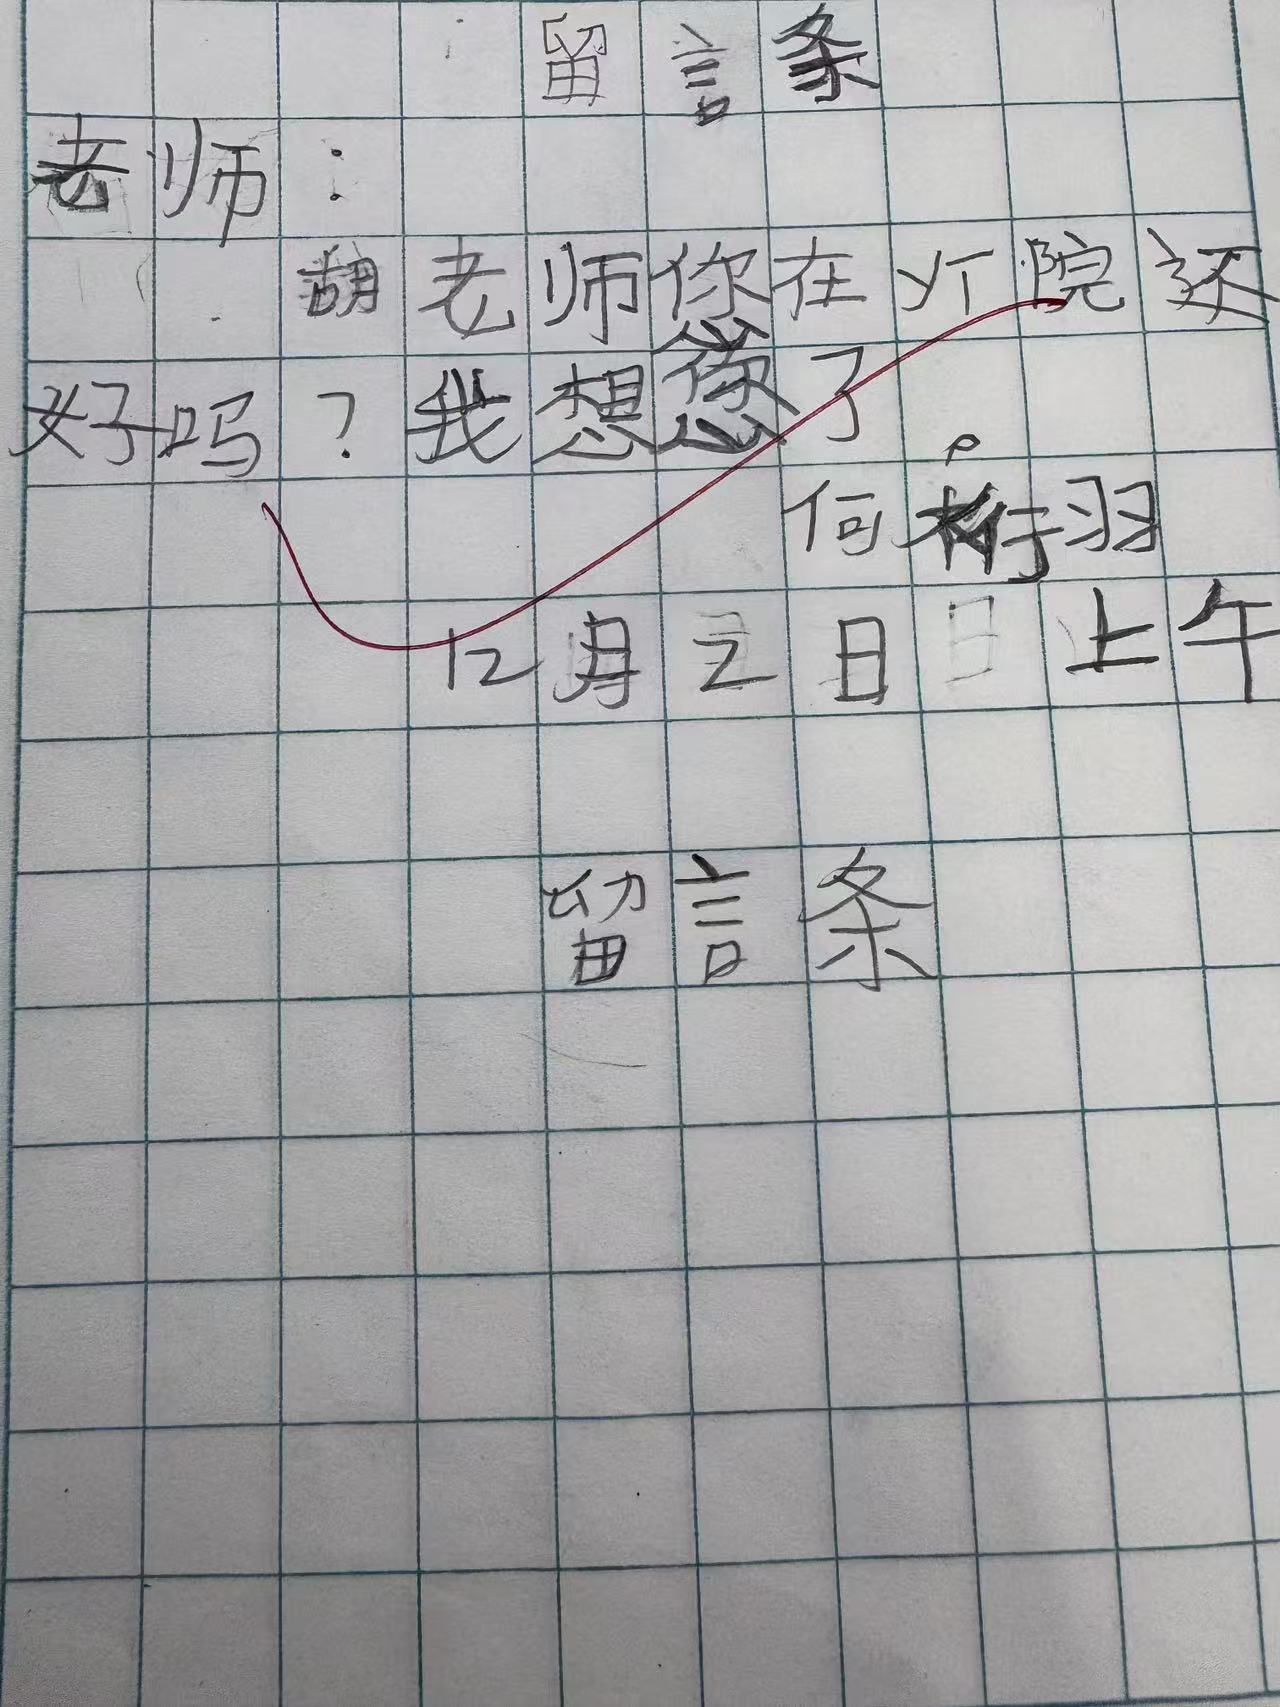 留言条
老师:
胡老师你在 院还
好吗?我想您了。
何桁羽
12月2日日上午
留言条